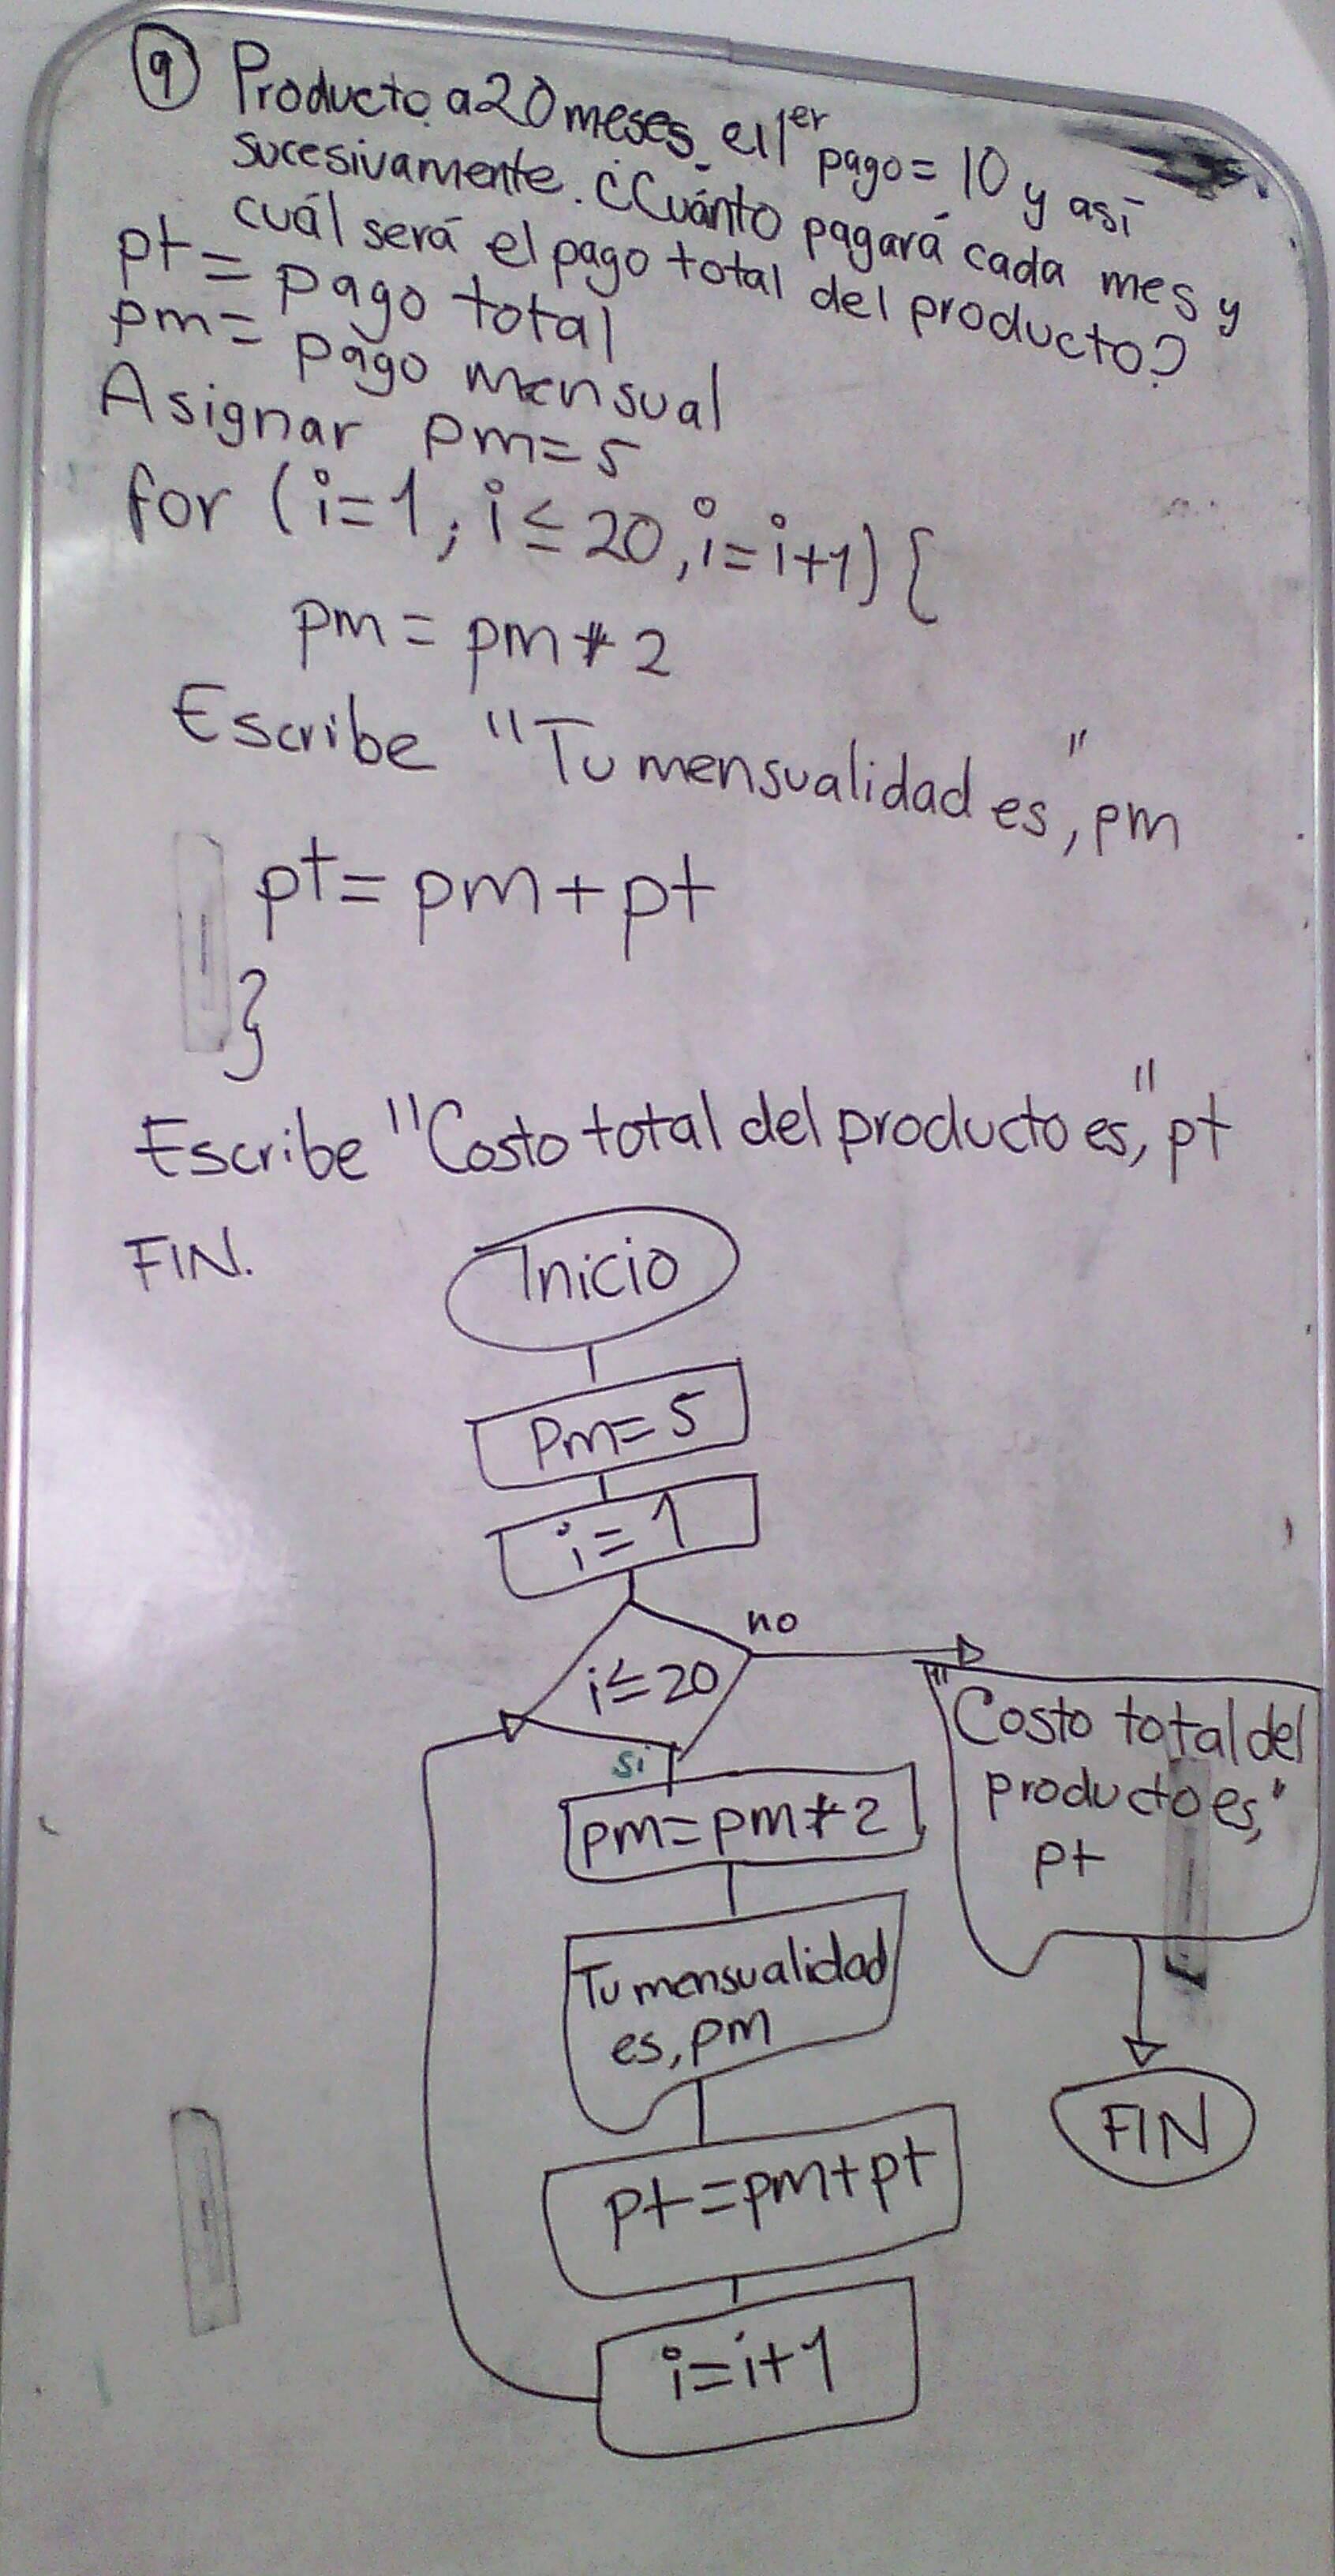 9 Producto a 20 meses el 1er pago = 10 y así
sucesivamente. ¿Cuánto pagará cada mes y
cuál será el pago total del producto?
pt = pago total
pm = pago mensual
Asignar pm=5
for (i=1; i≤20, i=i+1) {
pm = pm * 2
Escribe "Tu mensualidad es," pm
pt = pm + pt
}
Escribe "Costo total del producto es," pt
FIN.
Inicio
Pm=5
i=1
i≤20
no
si
pm=pm*2
Tu mensualidad
es, pm
pt=pm+pt
i=i+1
"Costo total del
producto es,"
pt
FIN